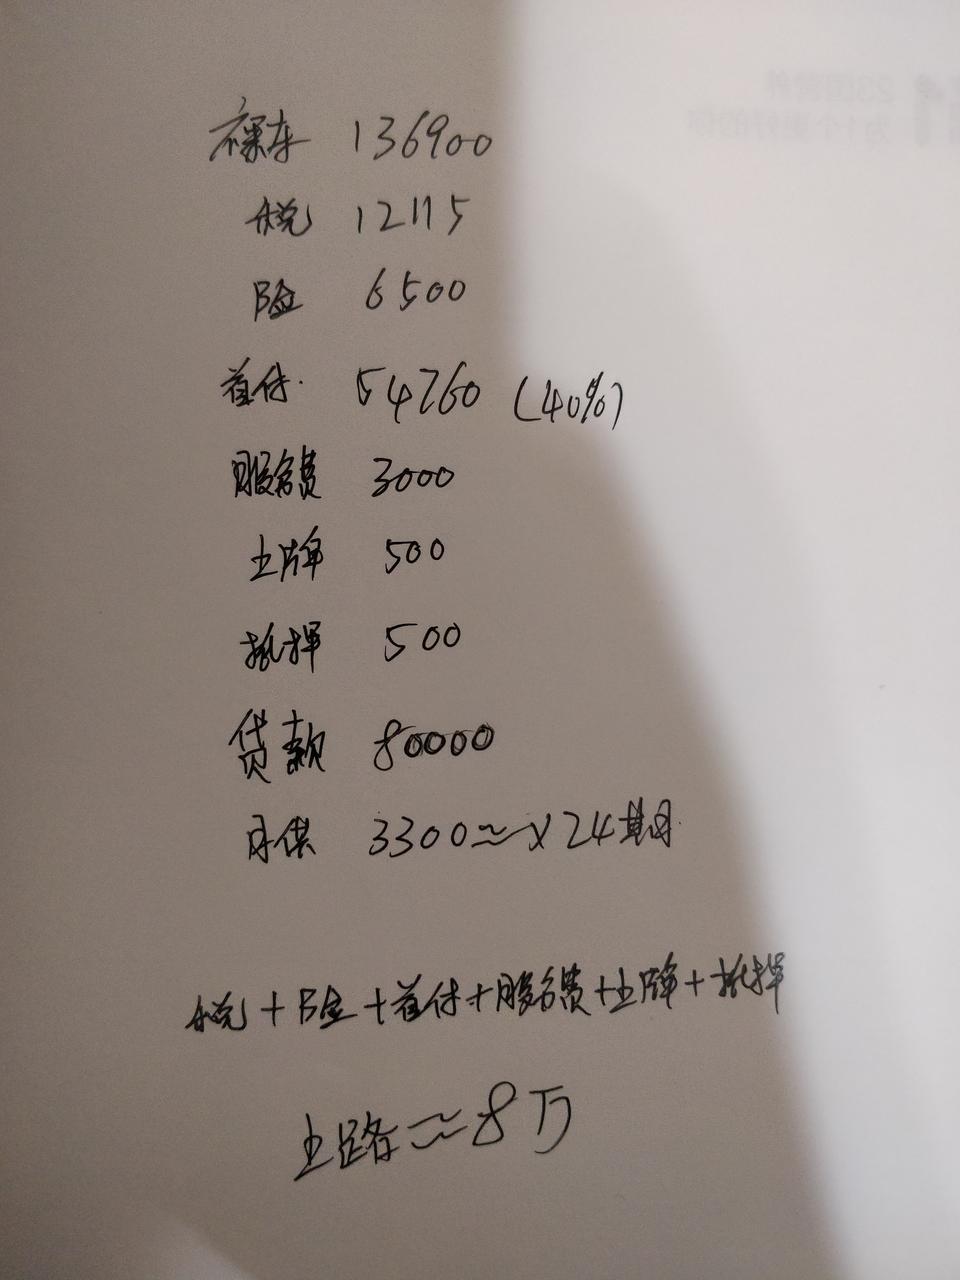 裸车 136900
税 12115
险 6500
首付 54760 (40%)
服务费 3000
上牌 500
抵押 500
贷款 80000
月供 3300≈×24期
税+险+首付+服务费+上牌+抵押
上路≈8万